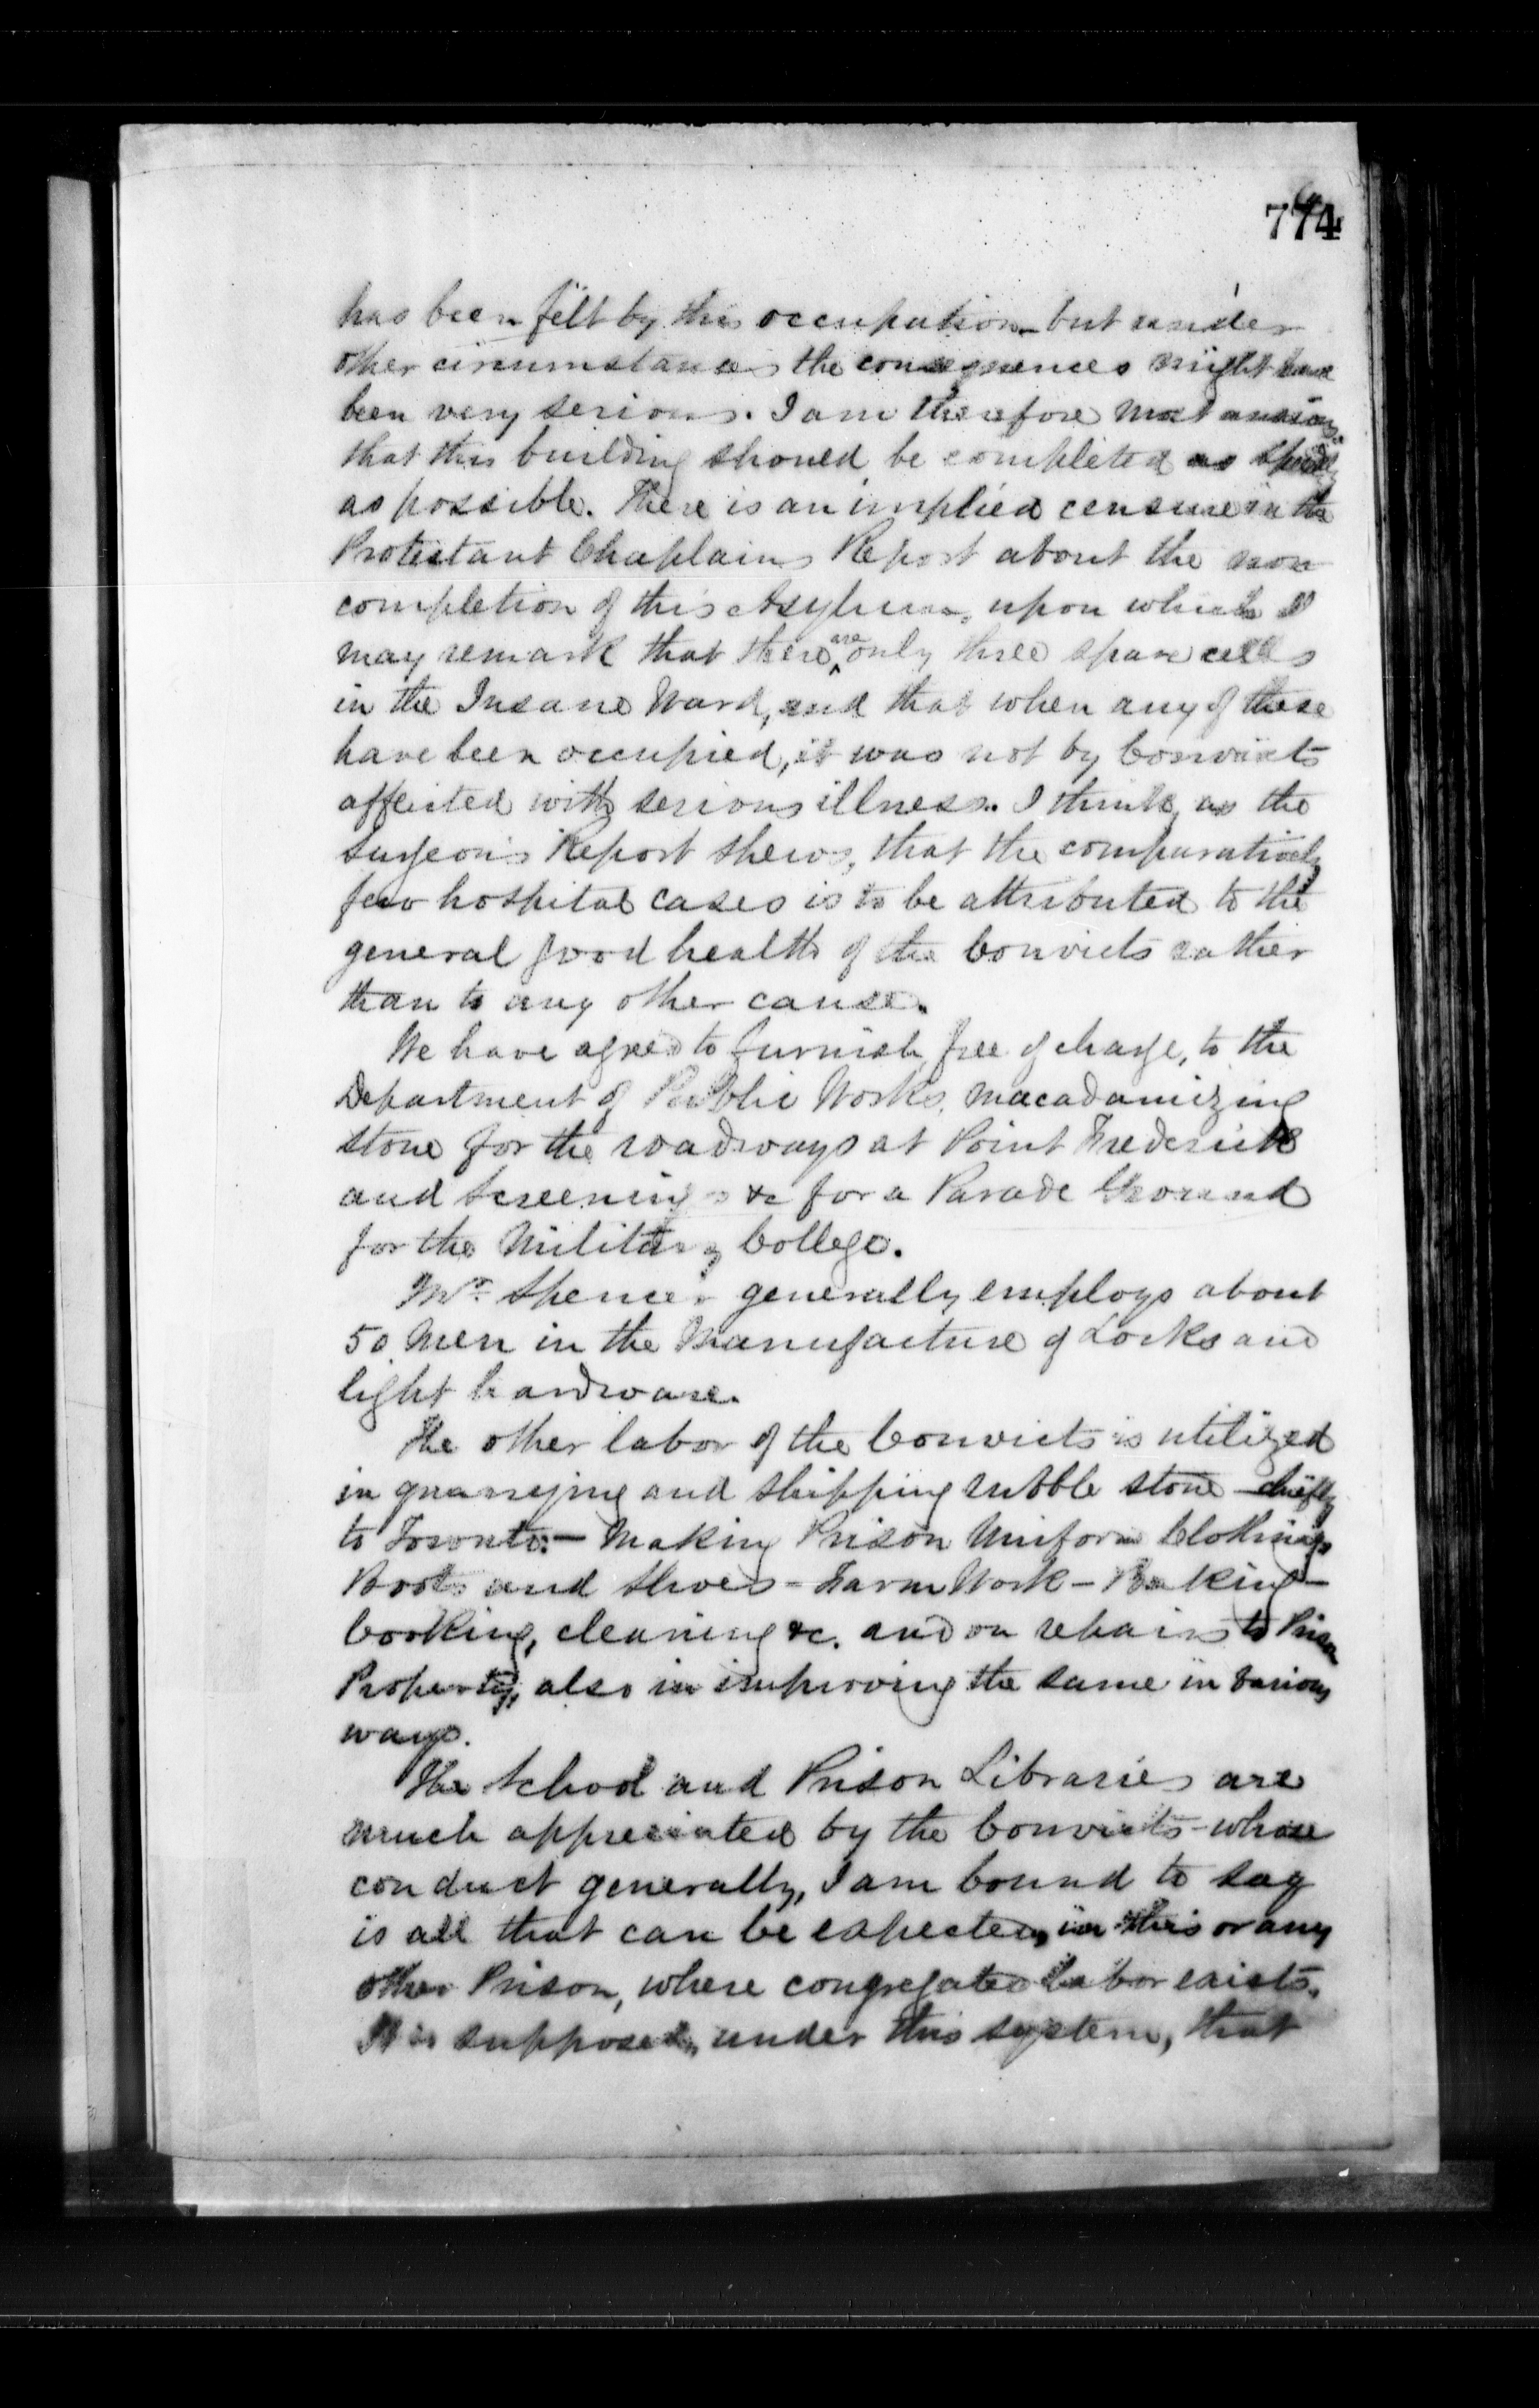 774
has been felt by this occupation - but under
other circumstances the consequences might have
been very serious. I am therefore most anxious
that this building should be completed as speedily
as possible. There is an implied censure in the
Protestant Chaplains Report about the non
completion of this Asylum, upon which I
may remark that there are only three spare cells
in the Insane Ward, and that when any of these
have been occupied, it was not by Convicts
affected with serious illness. I think, as the
Surgeon's Report shews, that the comparatively
few hospital cases is to be attributed to the
general good health of the Convicts rather
than to any other cause.
We have agreed to furnish, free of charge, to the
Department of Public Works, macadamizing
stone for the roadways at Point Frederick
and Screenings &c for a Parade Ground
for the Military College.
Mr. Spencer generally employs about
50 Men in the Manufacture of Locks and
light hardware.
The other labor of the Convicts is utilized
in quarrying and shipping rubble stone - chiefly
to Toronto. - Making Prison Uniform Clothing
Boots and Shoes - Farm Work - Baking -
Cooking, cleaning &c. and on repairs to Prison
Property, also in improving the same in various
ways.
The School and Prison Libraries are
much appreciated by the Convicts - whose
conduct generally, I am bound to say
is all that can be expected, in this or any
other Prison, where congregated labor exists.
It is supposed, under this system, that